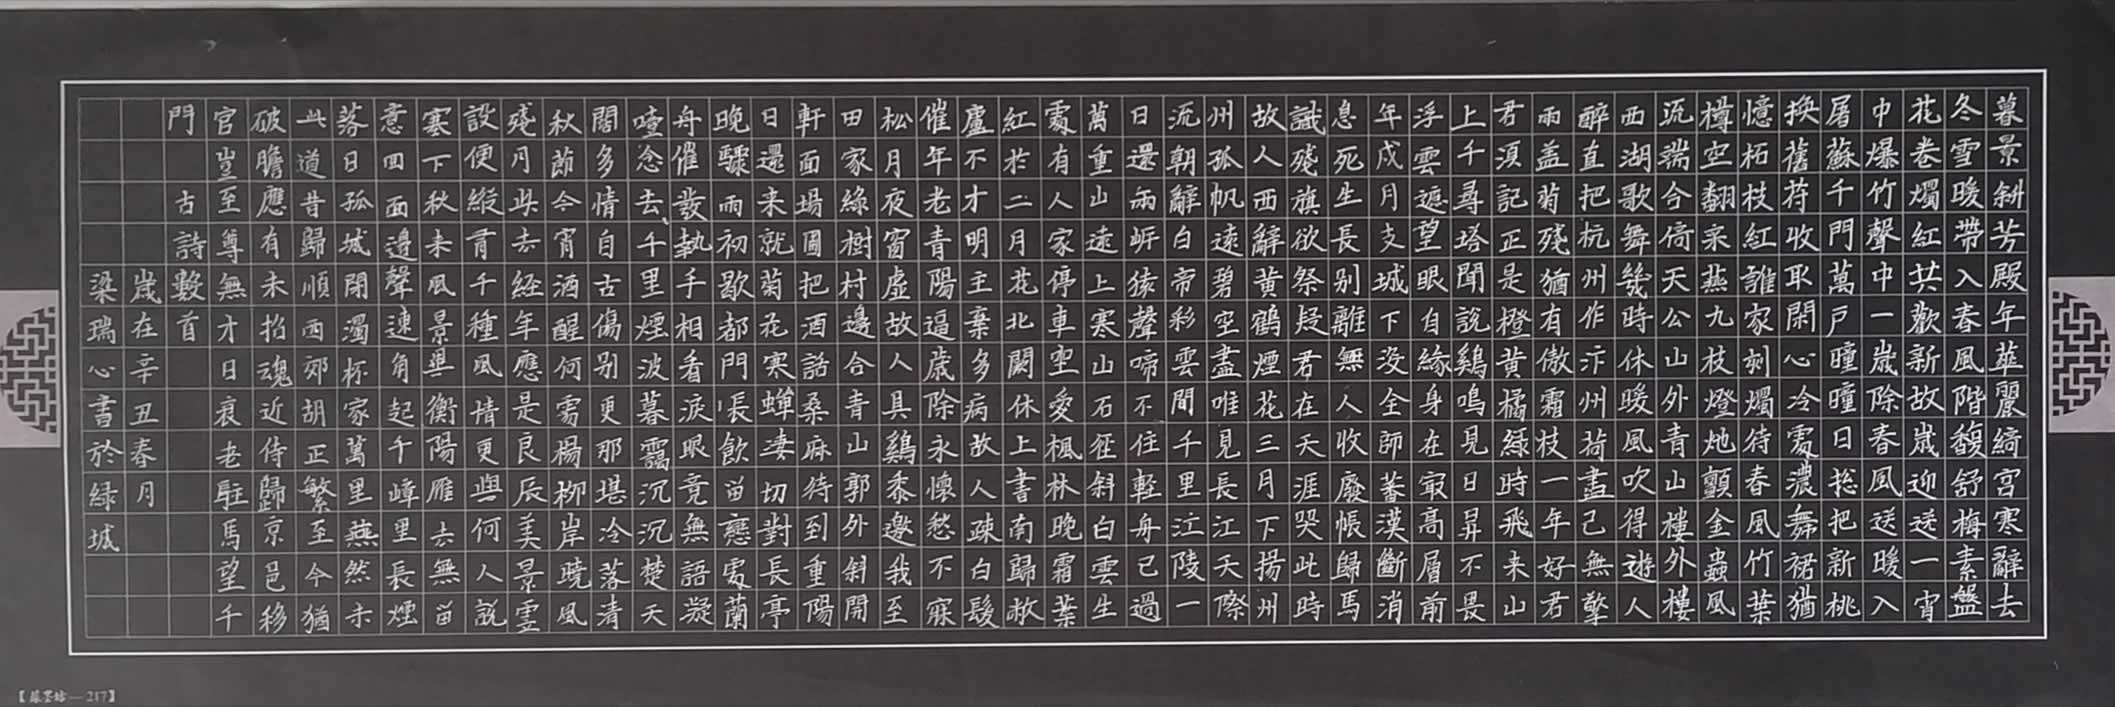 暮景斜芳殿年華麗綺宮寒辭去
冬雪暖帶入春風階馥舒梅素盤
花巻燭紅共歡新故歲迎送一宵
中爆竹聲中一歲除春風送暖入
屠蘇千門萬戶曈曈日捴把新桃
換舊苻收取閑心冷處濃舞裙猶
憶柘枝紅誰家刻燭待春風竹葉
樽空翻采燕九枝燈灺顫金蟲風
流端合倚天公山外青山樓外樓
西湖歌舞幾時休暖風吹得遊人
醉直把杭州作汴州荷盡已無擎
雨蓋菊殘猶有傲霜枝一年好君
君須記正是橙黃橘綠時飛來山
上千尋塔聞說鷄鳴見日昇不畏
浮雲遮望眼自緣身在最高層前
年戍月支城下没全師蕃漢斷消
息死生長别離無人收廢帳歸馬
識殘旗欲祭疑君在天涯哭此時
故人西辭黃鶴煙花三月下揚州
州孤帆遠碧空盡唯見長江天際
流朝辭白帝彩雲間千里江陵一
日還兩岍猿聲啼不住輕舟已過
萬重山遠上寒山石徑斜白雲生
處有人家停車坐愛楓林晚霜葉
紅於二月花北闕休上書南歸敝
廬不才明主棄多病故人疎白髮
催年老青陽逼歲除永懷愁不寐
松月夜窗虛故人具鷄黍邀我至
田家綠樹村邊合青山郭外斜開
軒面場圃把酒話桑麻待到重陽
日還來就菊花寒蟬淒切對長亭
晚驟雨初歇都門悵飲留戀處蘭
舟催發執手相看淚眼竟無語凝
噎念去、千里煙波暮靄沉沉楚天
闊多情自古傷别更那堪冷落清
秋節今宵酒醒何處楊柳岸曉風
殘月此去經年應是良辰美景虛
設便縱有千種風情更與何人說
塞下秋來風景異衡陽雁去無留
意四面邊聲連角起千嶂里長煙
落日孤城閉濁杯家萬里燕然未
此道昔歸順西郊胡正繁至今猶
破膽應有未招魂近侍歸京邑移
官豈至尊無才日衰老駐馬望千
門 古詩數首
歲在辛丑春月
梁瑞心書於綠城